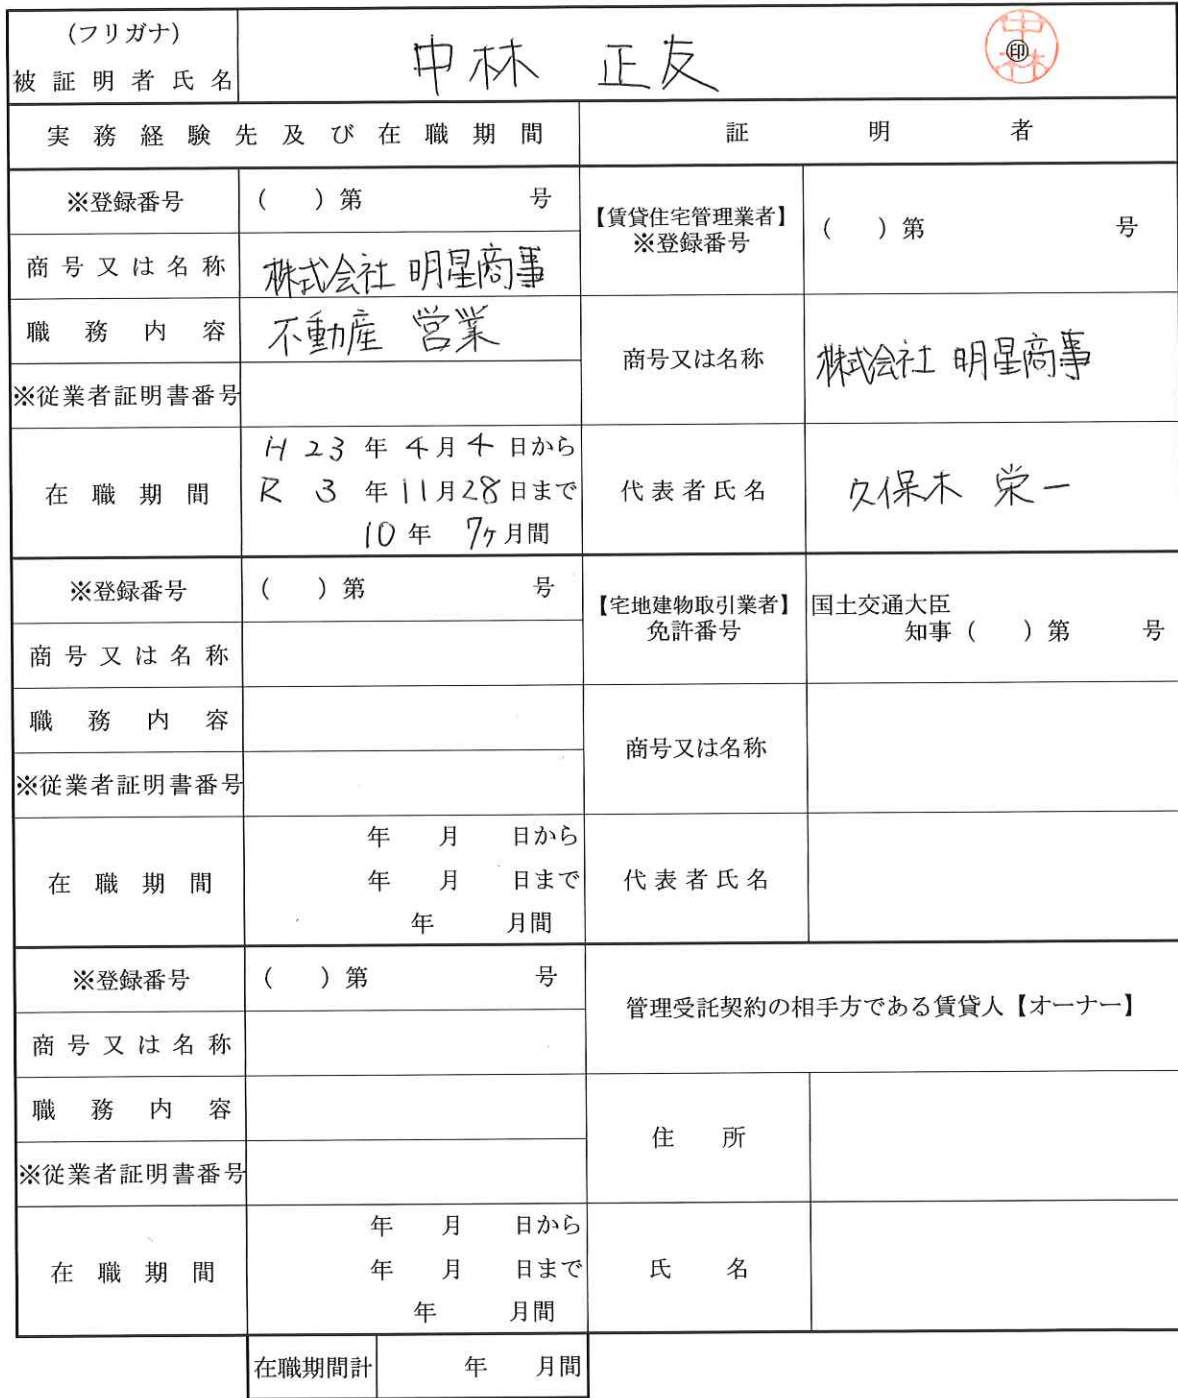 (フリガナ)
被証明者氏名 中林 正友 ㊞ 中林
実務経験先及び在職期間 証明者
※登録番号 ( )第 号 【賃貸住宅管理業者】 ※登録番号 ( )第 号
商号又は名称 株式会社 明星商事
職務内容 不動産 営業 商号又は名称 株式会社 明星商事
※従業者証明書番号
在職期間 H 23 年 4月 4 日から
R 3 年 11月 28日まで
10年 7ヶ月間
代表者氏名 久保木 栄一
※登録番号 ( )第 号 【宅地建物取引業者】 国土交通大臣
免許番号 知事( )第 号
商号又は名称
職務内容 商号又は名称
※従業者証明書番号
在職期間 年 月 日から
年 月 日まで
年 月間
代表者氏名
※登録番号 ( )第 号 管理受託契約の相手方である賃貸人【オーナー】
商号又は名称
職務内容 住所
※従業者証明書番号
在職期間 年 月 日から
年 月 日まで
年 月間
氏名
在職期間計 年 月間